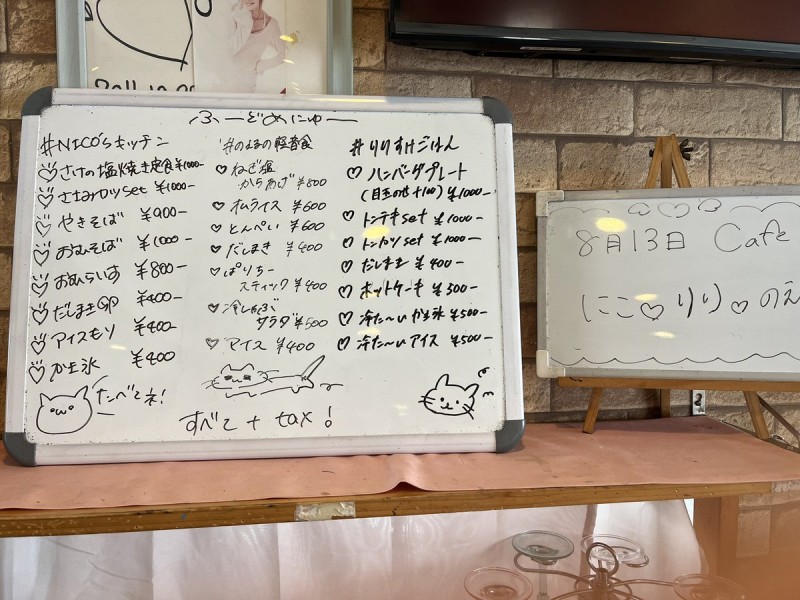 ふーどめにゅー
#NICO'sキッチン
さけの塩焼き定食 ¥1000-
ささみカツset ¥1000-
やきそば ¥900-
おむそば ¥1000-
おむらいす ¥800-
だしまき ¥400-
アイスもり ¥400-
かき氷 ¥400
たべてネ!
#のえるの軽音食
ねぎ塩
からあげ ¥800
オムライス ¥600
とんぺい ¥600
だしまき ¥400
ぱりちー
スティック ¥400
冷しゃぶ
サラダ ¥500
アイス ¥400
#りりすけごはん
ハンバーグプレート
(目玉のせ+100) ¥1000-
トンテキset ¥1000-
トンカツset ¥1000-
だしまき ¥400-
ホットケーキ ¥300-
冷た〜いかき氷 ¥500-
冷た〜いアイス ¥500-
すべて + tax!
8月13日 Cafe
にこ♡りり♡のえ